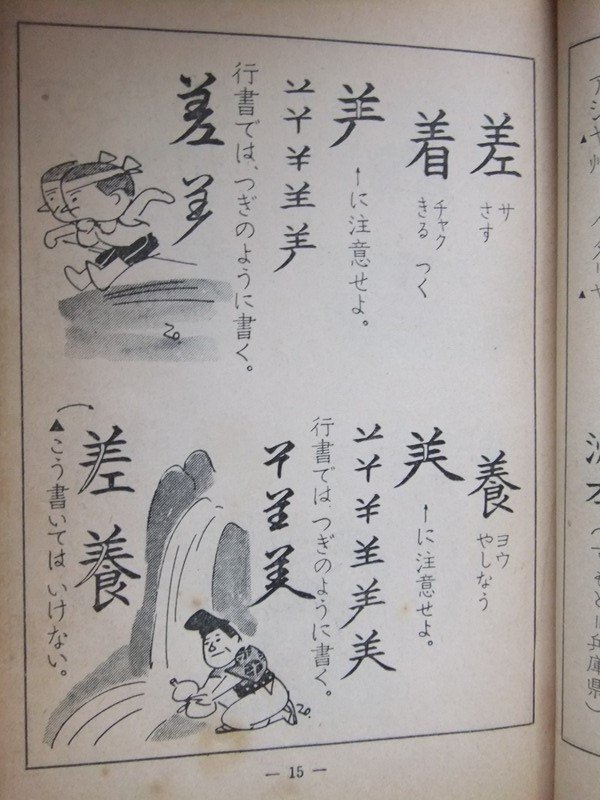 差 サ さす
着 チャク きる つく
←に注意せよ。
行書では、つぎのように書く。
差
養 ヨウ やしなう
←に注意せよ。
行書では、つぎのように書く。
差 養
▲こう書いては いけない。
— 15 —
兵庫県）